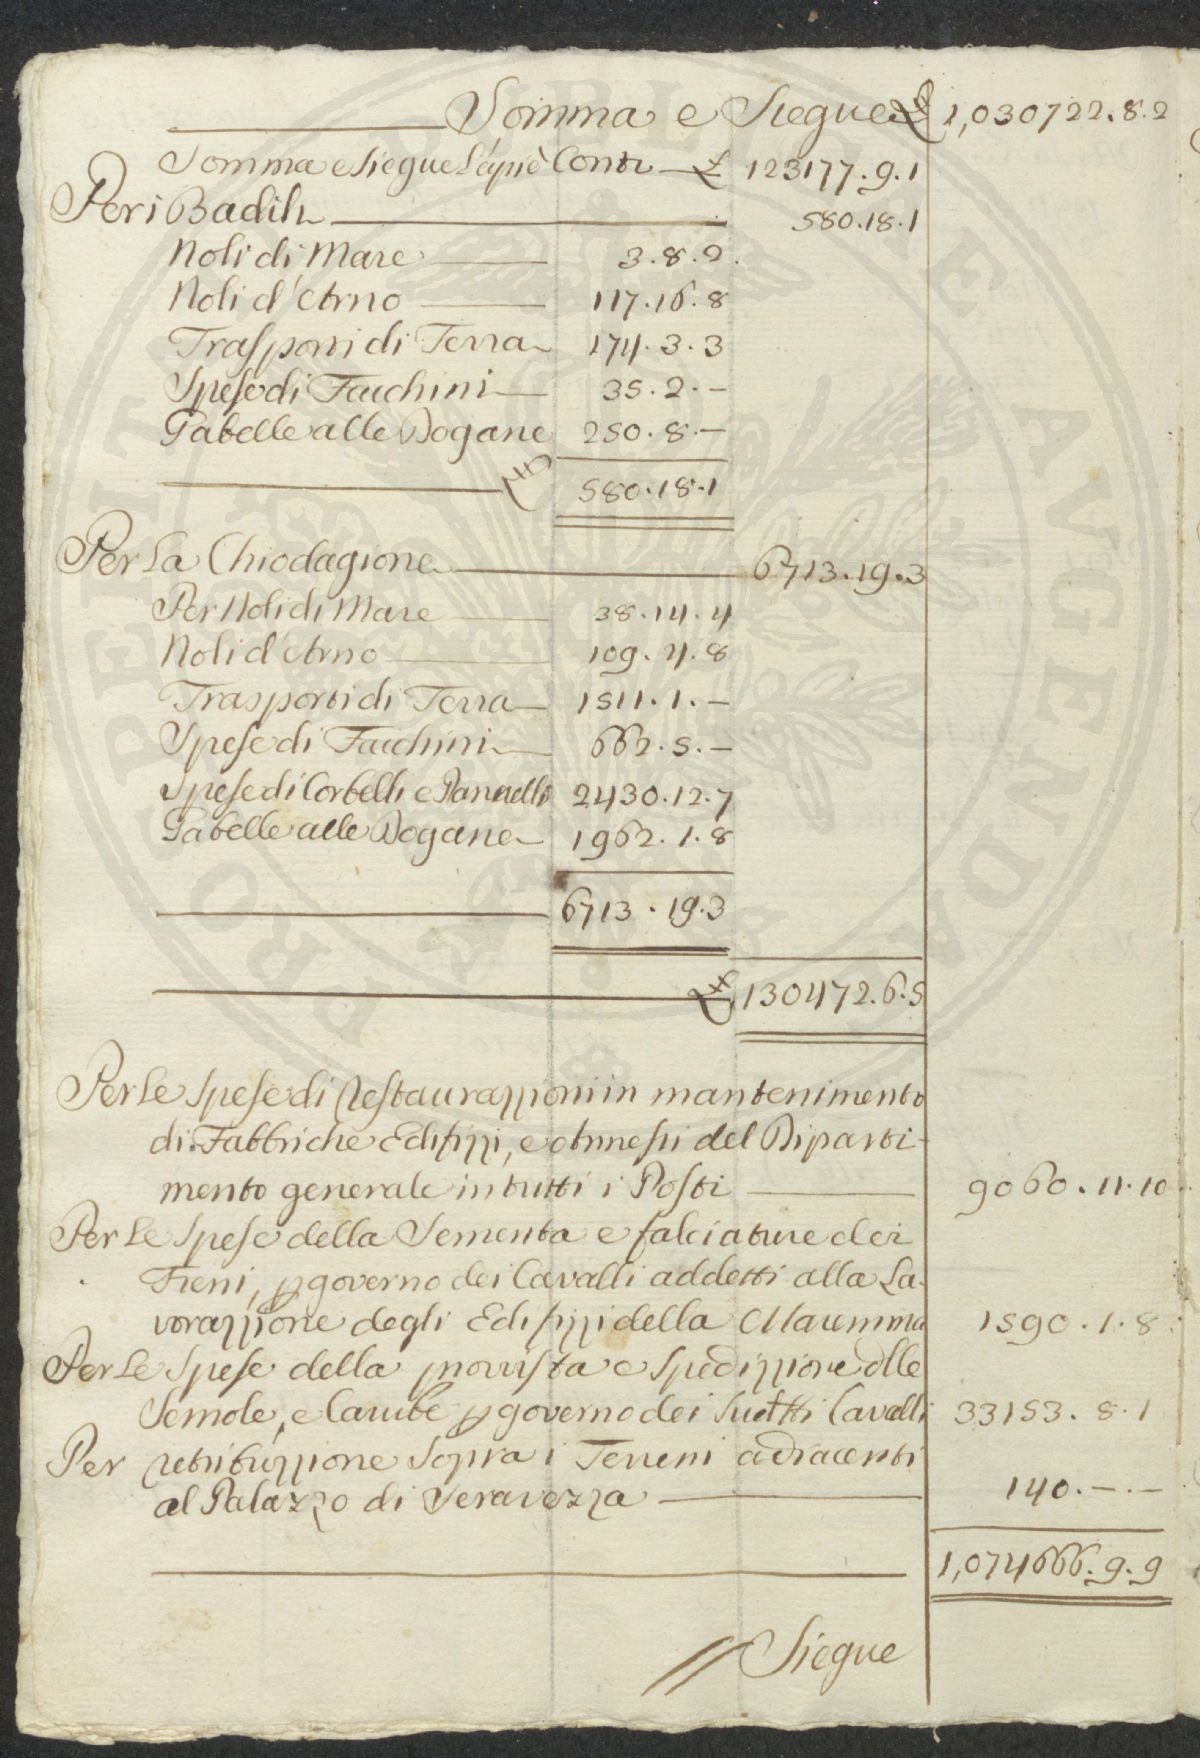 Somma e Siegue £ 1,030722.8.2
Somma e Siegue l'apiè Conti £ 123177.9.1
Per i Badili 580.18.1
Noli di Mare 3.8.2.
Noli d'Arno 117.16.8
Trasporti di Terra 174.3.3
Spese di Facchini 35.2.–
Gabelle alle Dogane 250.8.–
£ 580.18.1
Per la Chiodagione 6713.19.3
Per Noli di Mare 38.14.4
Noli d'Arno 109.4.8
Trasporti di Terra 1511.1.–
Spese di Facchini 662.5.–
Spese di Corbelli e Pannelli 2430.12.7
Gabelle alle Dogane 1962.1.8
6713.19.3
£ 130472.6.5
Per le Spese di restaurazzioni in mantenimento
di Fabbriche Edifizzi, e Annessi del Riparti-
mento generale in tutti i Posti 9060.11.10
Per le Spese della Sementa e falciature dei
Fieni, p governo dei Cavalli addetti alla La-
vorazzione degli Edifizzi della Maremma 1590.1.8
Per le Spese della provvista e Spedizzione dlle
Semole, e Carube p governo dei Sudtti Cavalli 33153.8.1
Per retribuzzione Sopra i Terreni adiacenti
al Palazzo di Seravezza 140.–.–
1,074666.9.9
// Siegue
PROSPERITATI PUBLICAE AVGENDAE